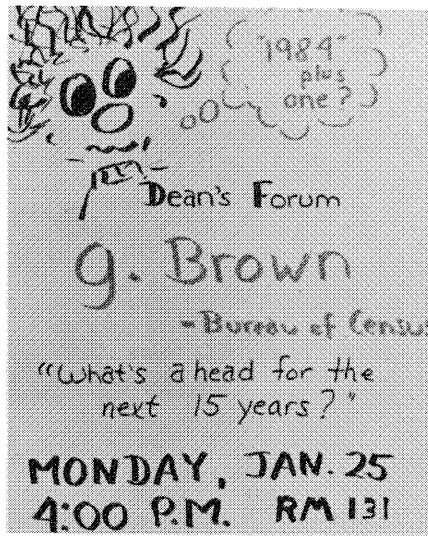 "1984"
plus
one?
Dean's Forum
g. Brown
- Bureau of Census
"What's ahead for the
next 15 years?"
MONDAY, JAN. 25
4:00 P.M. RM 131